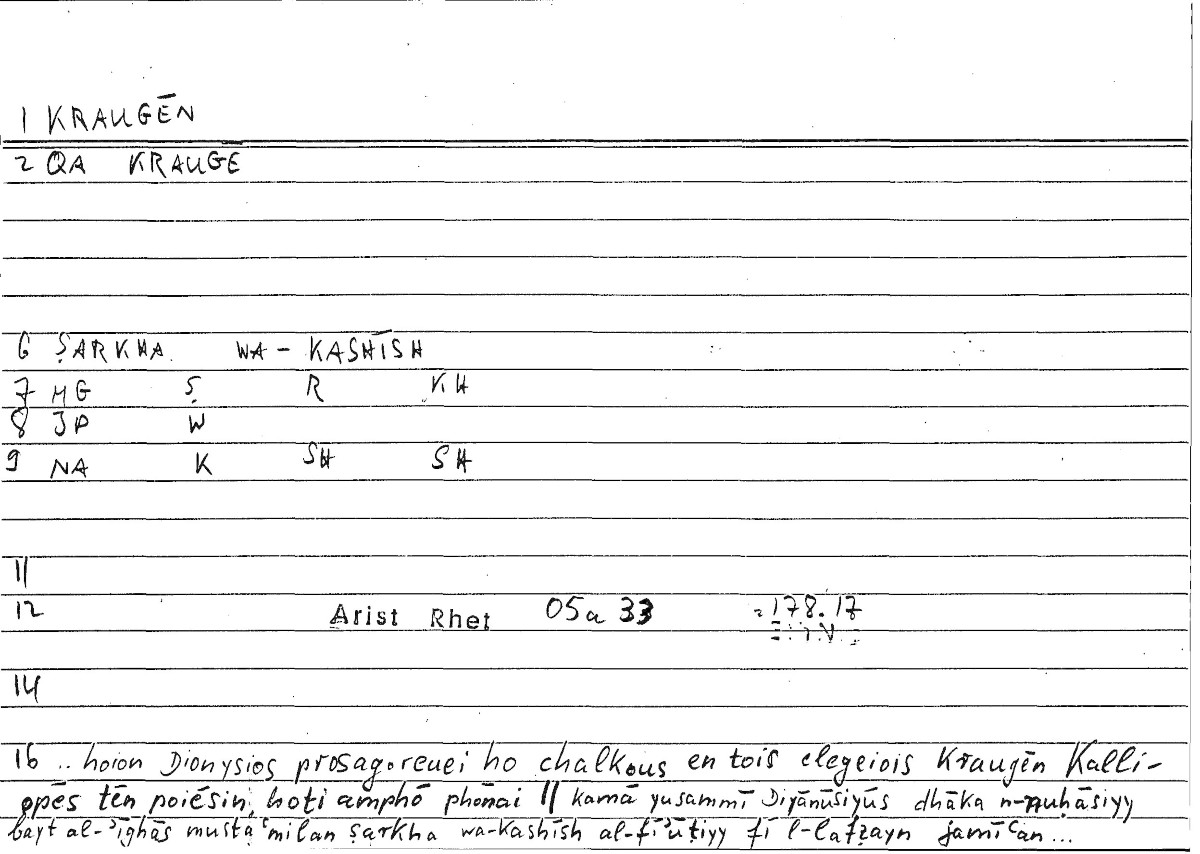 1 KRAUGĒN
2 QA KRAUGĒ
6 ṢARKHA WA-KASHĪSH
7 MG Ṣ R KH
8 JP W
9 NA K SH SH
11
12 Arist Rhet 05a 33 =178.17
14
16 .. hoion Dionysios prosagoreuei ho chalkous en tois elegeiois Kraugēn Kalli-
opēs tēn poiēsin, hoti amphō phōnai || kamā yusammī Diyānūsiyūs dhāka n-nuḥāsiyy
bayt al-ʾīghās mustaʿmilan ṣarkha wa-kashīsh fī l-lafẓayn jamīʿan...